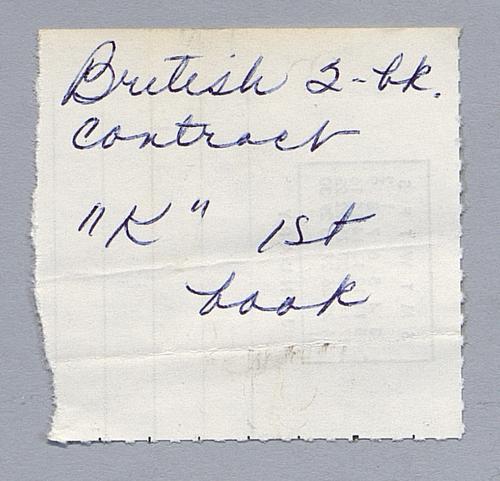 British 2-bk.
contract
"K" 1st
book